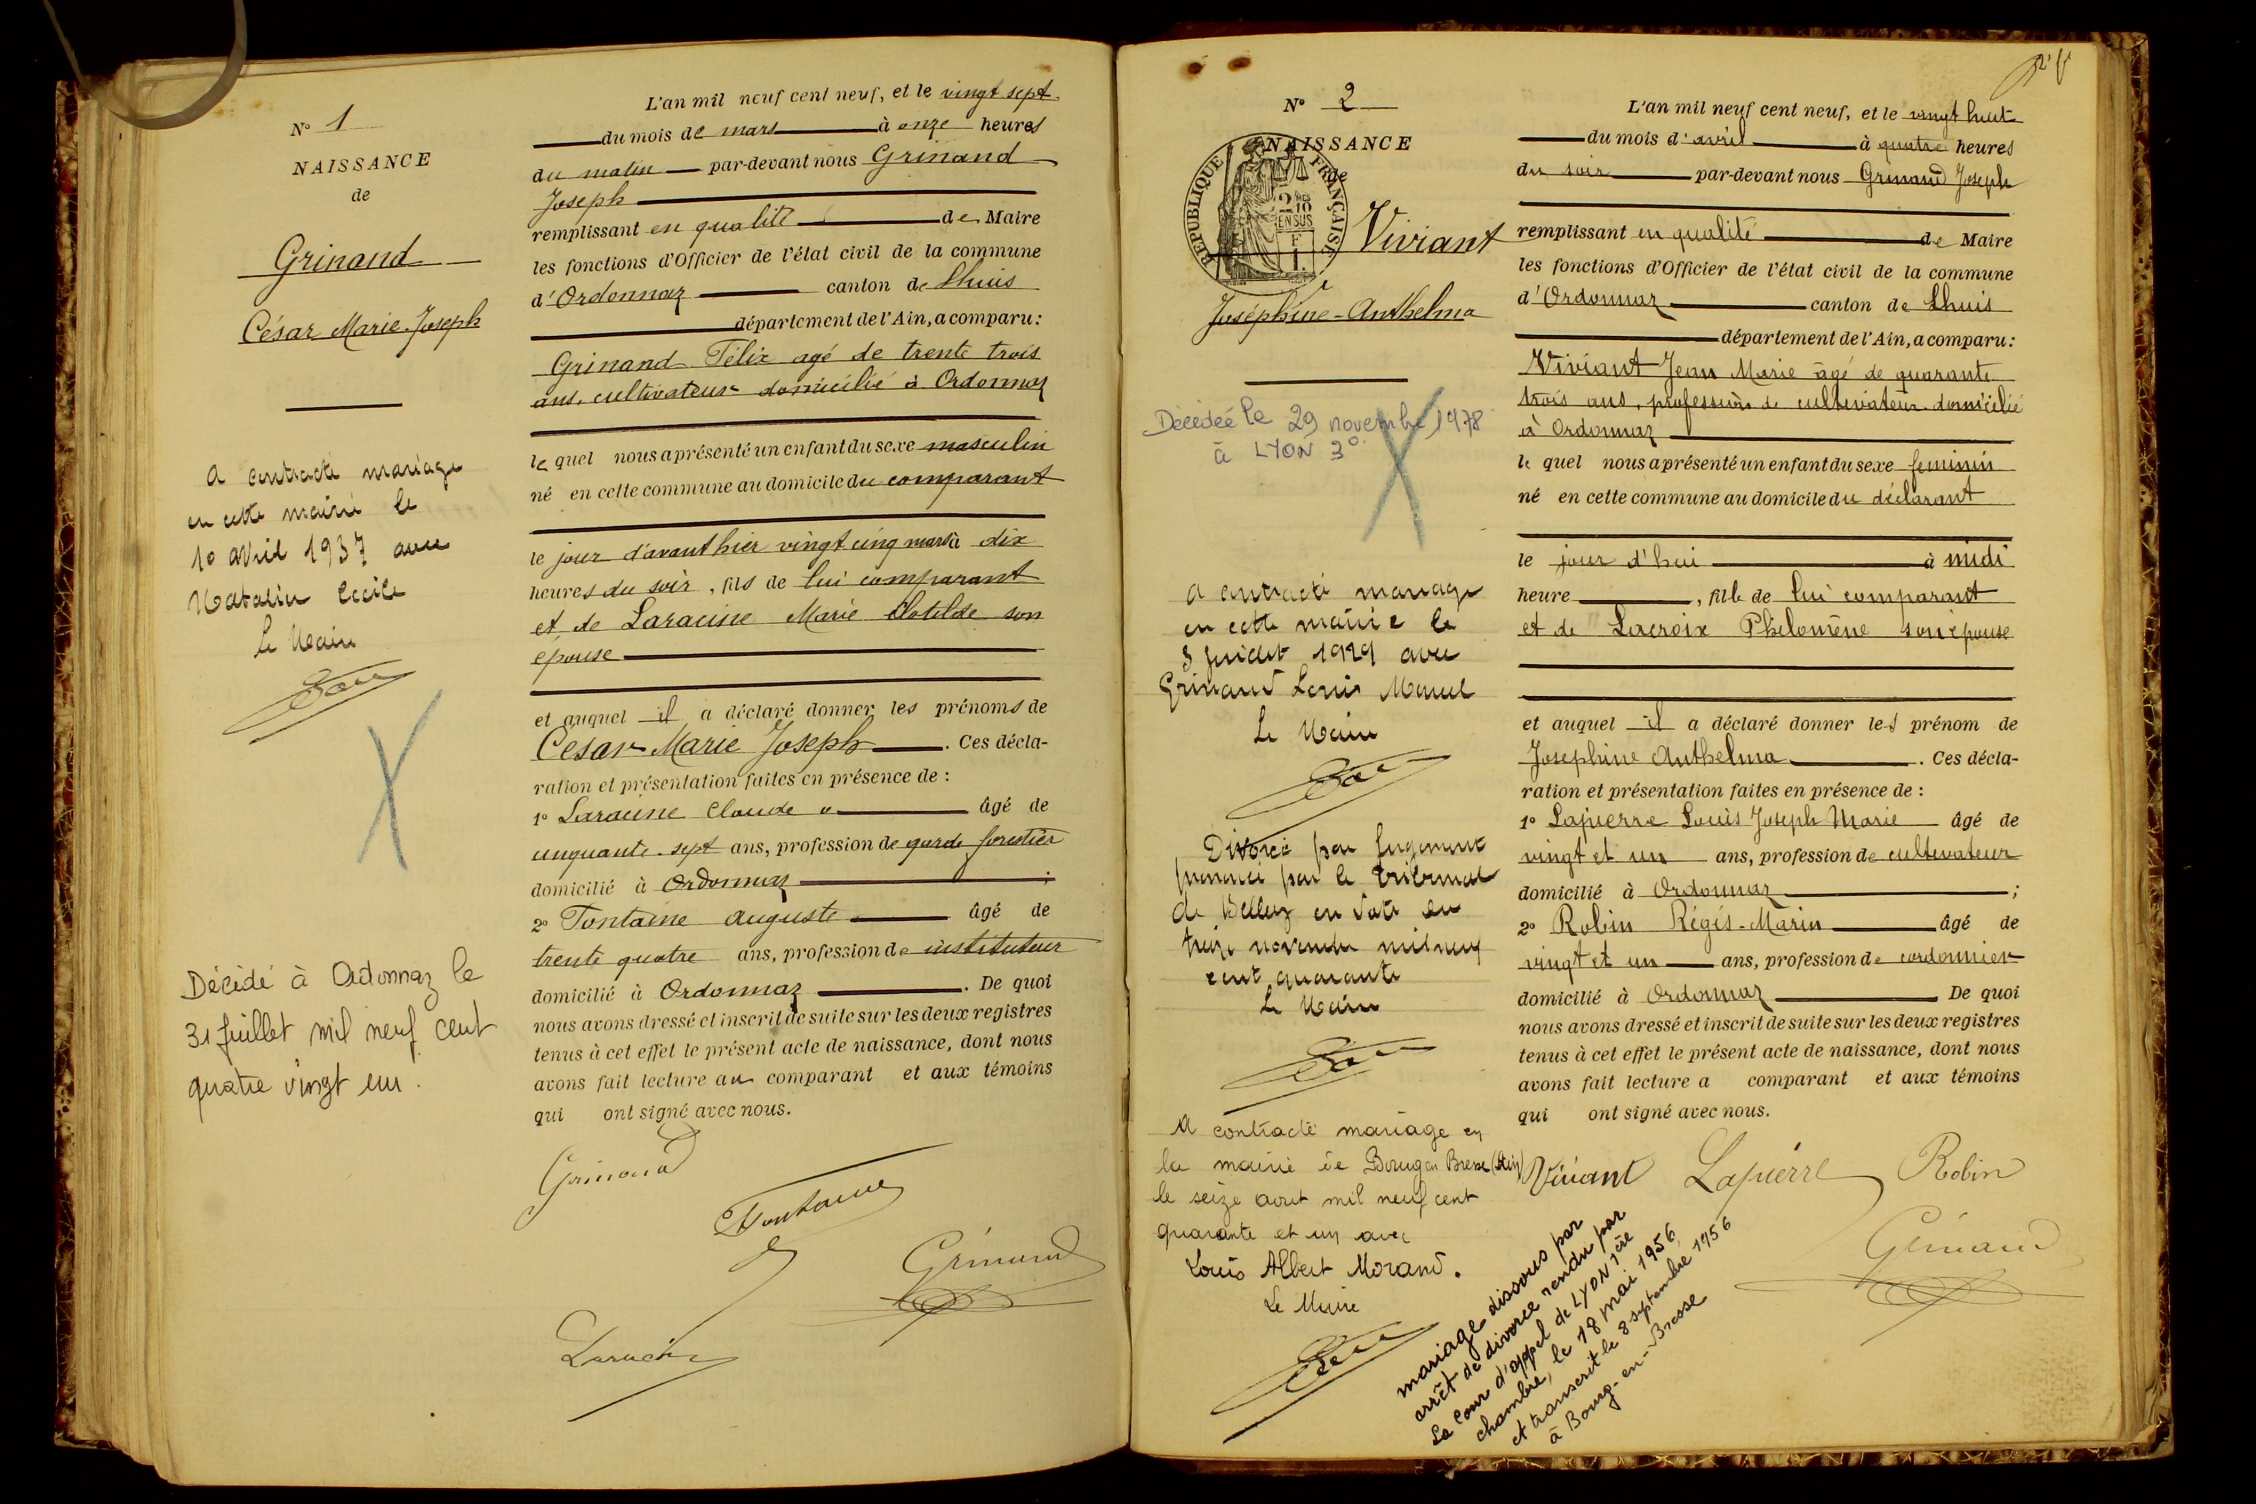 N° 1
NAISSANCE
de
Grinand
César Marie Joseph
a contracté mariage
en cette mairie le
10 avril 1937 avec
Natalin Cécile
Le Maire
Décédé à Ordonnaz le
31 juillet mil neuf cent
quatre vingt un.
L'an mil neuf cent neuf, et le vingt sept
du mois de mars à onze heures
du matin par-devant nous Grinand
Joseph
remplissant en qualité de Maire
les fonctions d'Officier de l'état civil de la commune
d'Ordonnaz canton de Lhuis
département de l'Ain, a comparu:
Grinand Félix agé de trente trois
ans, cultivateur domicilié à Ordonnaz
le quel nous a présenté un enfant du sexe masculin
né en cette commune au domicile du comparant
le jour d'avant hier vingt cinq mars à dix
heures du soir, fils de lui comparant
et de Laracine Marie Clotilde son
épouse
et auquel il a déclaré donner les prénoms de
César Marie Joseph. Ces décla-
ration et présentation faites en présence de:
1° Laracine Claude âgé de
cinquante-sept ans, profession de garde forestier
domicilié à Ordonnaz;
2° Fontaine Auguste âgé de
trente quatre ans, profession de instituteur
domicilié à Ordonnaz. De quoi
nous avons dressé et inscrit de suite sur les deux registres
tenus à cet effet le présent acte de naissance, dont nous
avons fait lecture au comparant et aux témoins
qui ont signé avec nous.
Grinand
Fontaine
Grinand
Laracine
N° 2
NAISSANCE
de
REPUBLIQUE FRANÇAISE
2/10 EN SUS
F
1.
Viviant
Joséphine-Anthelma
Décédée le 29 novembre 1978
à LYON 3°
a contracté mariage
en cette mairie le
3 juillet 1929 avec
Grinand Louis Marcel
Le Maire
Divorcé par jugement
prononcé par le tribunal
de Belley en date du
treize novembre mil neuf
cent quarante
Le Maire
A contracté mariage en
la mairie de Bourg en Bresse (Ain)
le seize août mil neuf cent
quarante et un avec
Louis Albert Morand.
Le Maire
L'an mil neuf cent neuf, et le vingt huit
du mois d'avril à quatre heures
du soir par-devant nous Grinand Joseph
remplissant en qualité de Maire
les fonctions d'Officier de l'état civil de la commune
d'Ordonnaz canton de Lhuis
département de l'Ain, a comparu:
Viviant Jean Marie âgé de quarante
trois ans, profession de cultivateur domicilié
à Ordonnaz
le quel nous a présenté un enfant du sexe feminin
né en cette commune au domicile du déclarant
le jour d'hui à midi
heure, fille de lui comparant
et de Lacroix Philomène son épouse
et auquel il a déclaré donner les prénom de
Josephine Anthelma. Ces décla-
ration et présentation faites en présence de:
1° Lapierre Louis Joseph Marie âgé de
vingt et un ans, profession de cultivateur
domicilié à Ordonnaz;
2° Robin Régis-Marin âgé de
vingt et un ans, profession de cordonnier
domicilié à Ordonnaz De quoi
nous avons dressé et inscrit de suite sur les deux registres
tenus à cet effet le présent acte de naissance, dont nous
avons fait lecture a comparant et aux témoins
qui ont signé avec nous.
Viviant Lapierre Robin
Grinand
mariage dissous par
arrêt de divorce rendu par
La Cour d'appel de LYON 1ère
chambre, le 18 mai 1956
et transcrit le 8 septembre 1956
à Bourg-en-Bresse